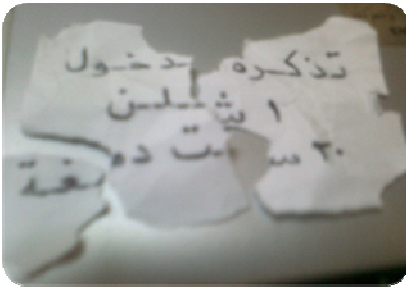 تذكره دخول
١ شلن
٢٠ سنت دمغة